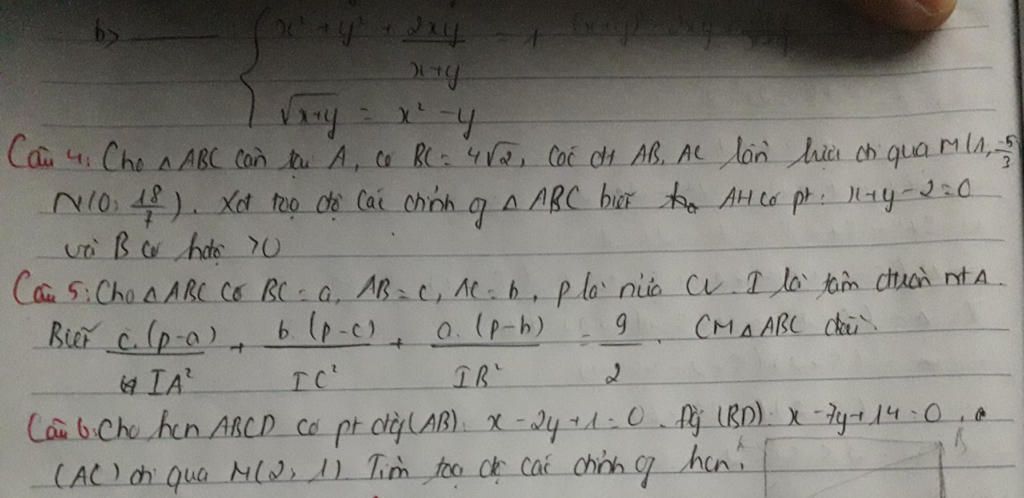 b> x² + y² + 2xy/x+y = 1
√x+y = x² - y
Câu 4: Cho △ABC cân tại A, có BC = 4√2, các đt AB, AC lần lượt đi qua M(1, -5/3
N(0; 18/7). Xđ toạ độ các đỉnh of △ ABC biết AH có pt: x+y-2=0
và B có hđộ >0
Câu 5: Cho △ABC có BC = a, AB = c, AC = b, p là nửa CV. I là tâm đtròn nt △.
Biết c.(p-a)/IA² + b.(p-c)/IC² + a.(p-b)/IB² = 9/2. CM △ABC đều
Câu 6: Cho hcn ABCD có pt đtg(AB): x-2y+1=0. Đg (BD): x-7y+14=0,
(AC) đi qua M(2; 1). Tìm toạ độ các đỉnh of hcn.